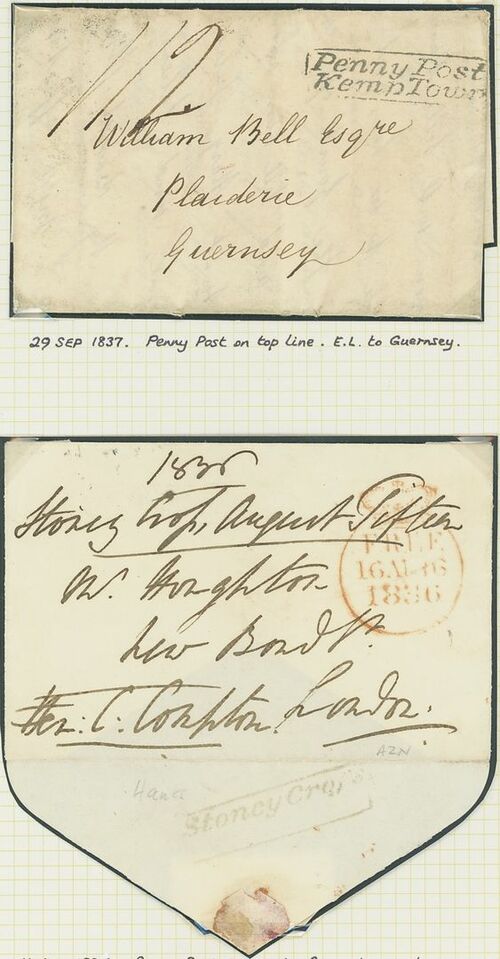 1/2
Penny Post
Kemp Town
William Bell Esqre
Plaiderie
Guernsey
29 SEP 1837. Penny Post on top line. E.L. to Guernsey.
1836
Stoney Cross, August Fifteen
FREE
16 AU 16
1836
Mr. Houghton
New Bond St.
London.
Hen: C: Compton
AZN
Hants
Stoney Cross